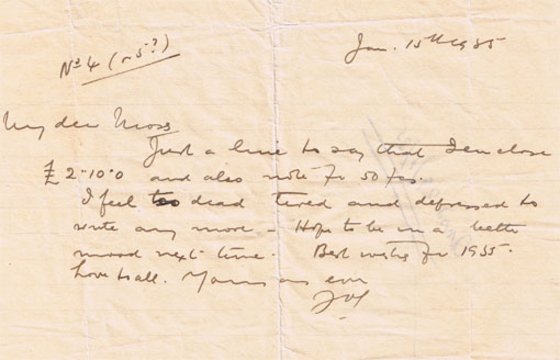 No 4 (or 5?)
Jan. 15th 1955
My dear Moss
Just a line to say that I enclose
£ 2-10-0 and also note for 50 frs.
I feel too dead tired and depressed to
write any more - Hope to be in a better
mood next time. Best wishes for 1955.
Love to all. Yours as ever